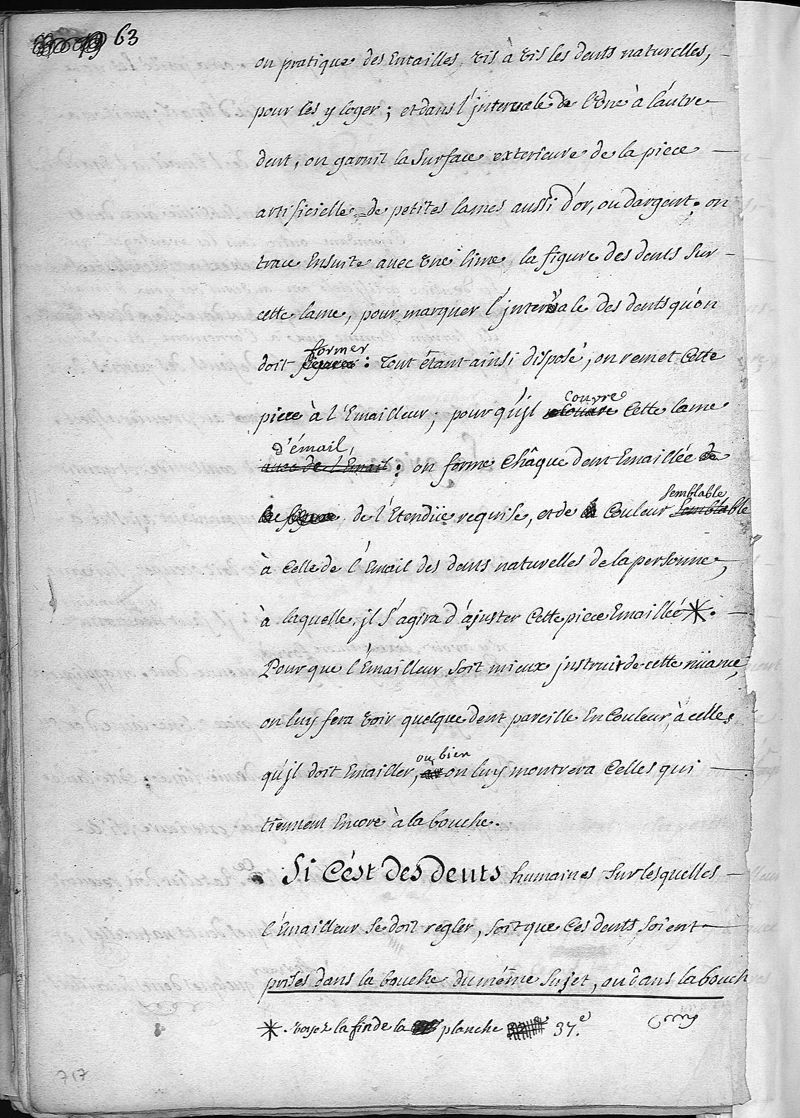 63
on pratique des Entailles, vis à vis les dents naturelles,
pour les y loger ; et dans l'jntervale de l'vne à l'autre
dent, on garnit la Surface exterieure de la piece
artificielle de petites lames aussi d'or, ou dargent, on
trace Ensuite avec vne lime, la figure des dents Sur
cette lame, pour marquer l'jntervale des dents qu'on
former
doit : Tout étant ainsi disposé, on remet Cette
couvre
piece à l'Emailleur, pour qu'jl Cette lame
d'émail,
avec de l'Email : on forme Châque dent Emaillée de
semblable
de l'Etendüe requise, et de la Couleur Semblable
à Celle de l'Email des dents naturelles de la personne,
à laquelle, jl S'agira d'ajuster Cette piece Emaillée * .
Pour que l'Emailleur Soit mieux jnstruit de cette nüance,
on luy fera voir quelque dent pareille En Couleur, à celles
ou bien
qu'jl doit Emailler, on luy montrera Celles qui
tiennent Encore à la bouche.
Si C'ést des dents humaines Sur lesquelles
l'Emailleur Se doit regler, Soit que Ces dents Soient
prises dans la bouche du même Sujet, ou dans la bouch
* voyez la fin de la planche 37.e
717